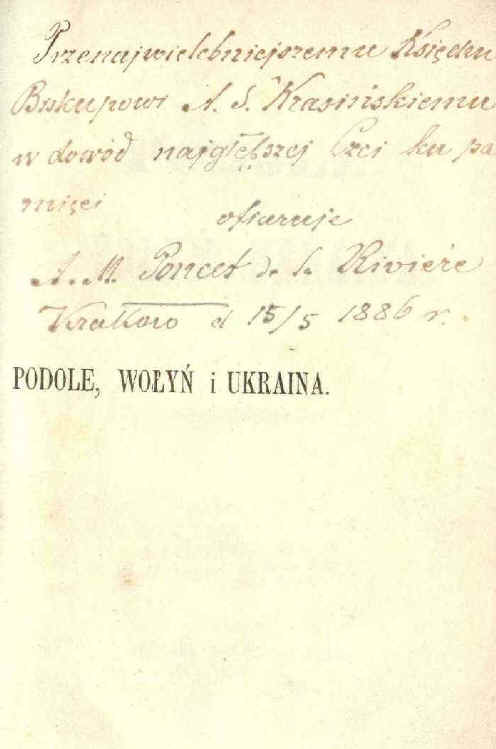 Przenajwielebniejszemu Księdzu
Biskupowi A. S. Krasińskiemu
w dowód najgłębszej Czci ku pa
mięci
ofiaruje
A. M. Poncet de la Riviére
Kraków d 15/5 1886 r.
PODOLE, WOŁYŃ i UKRAINA.